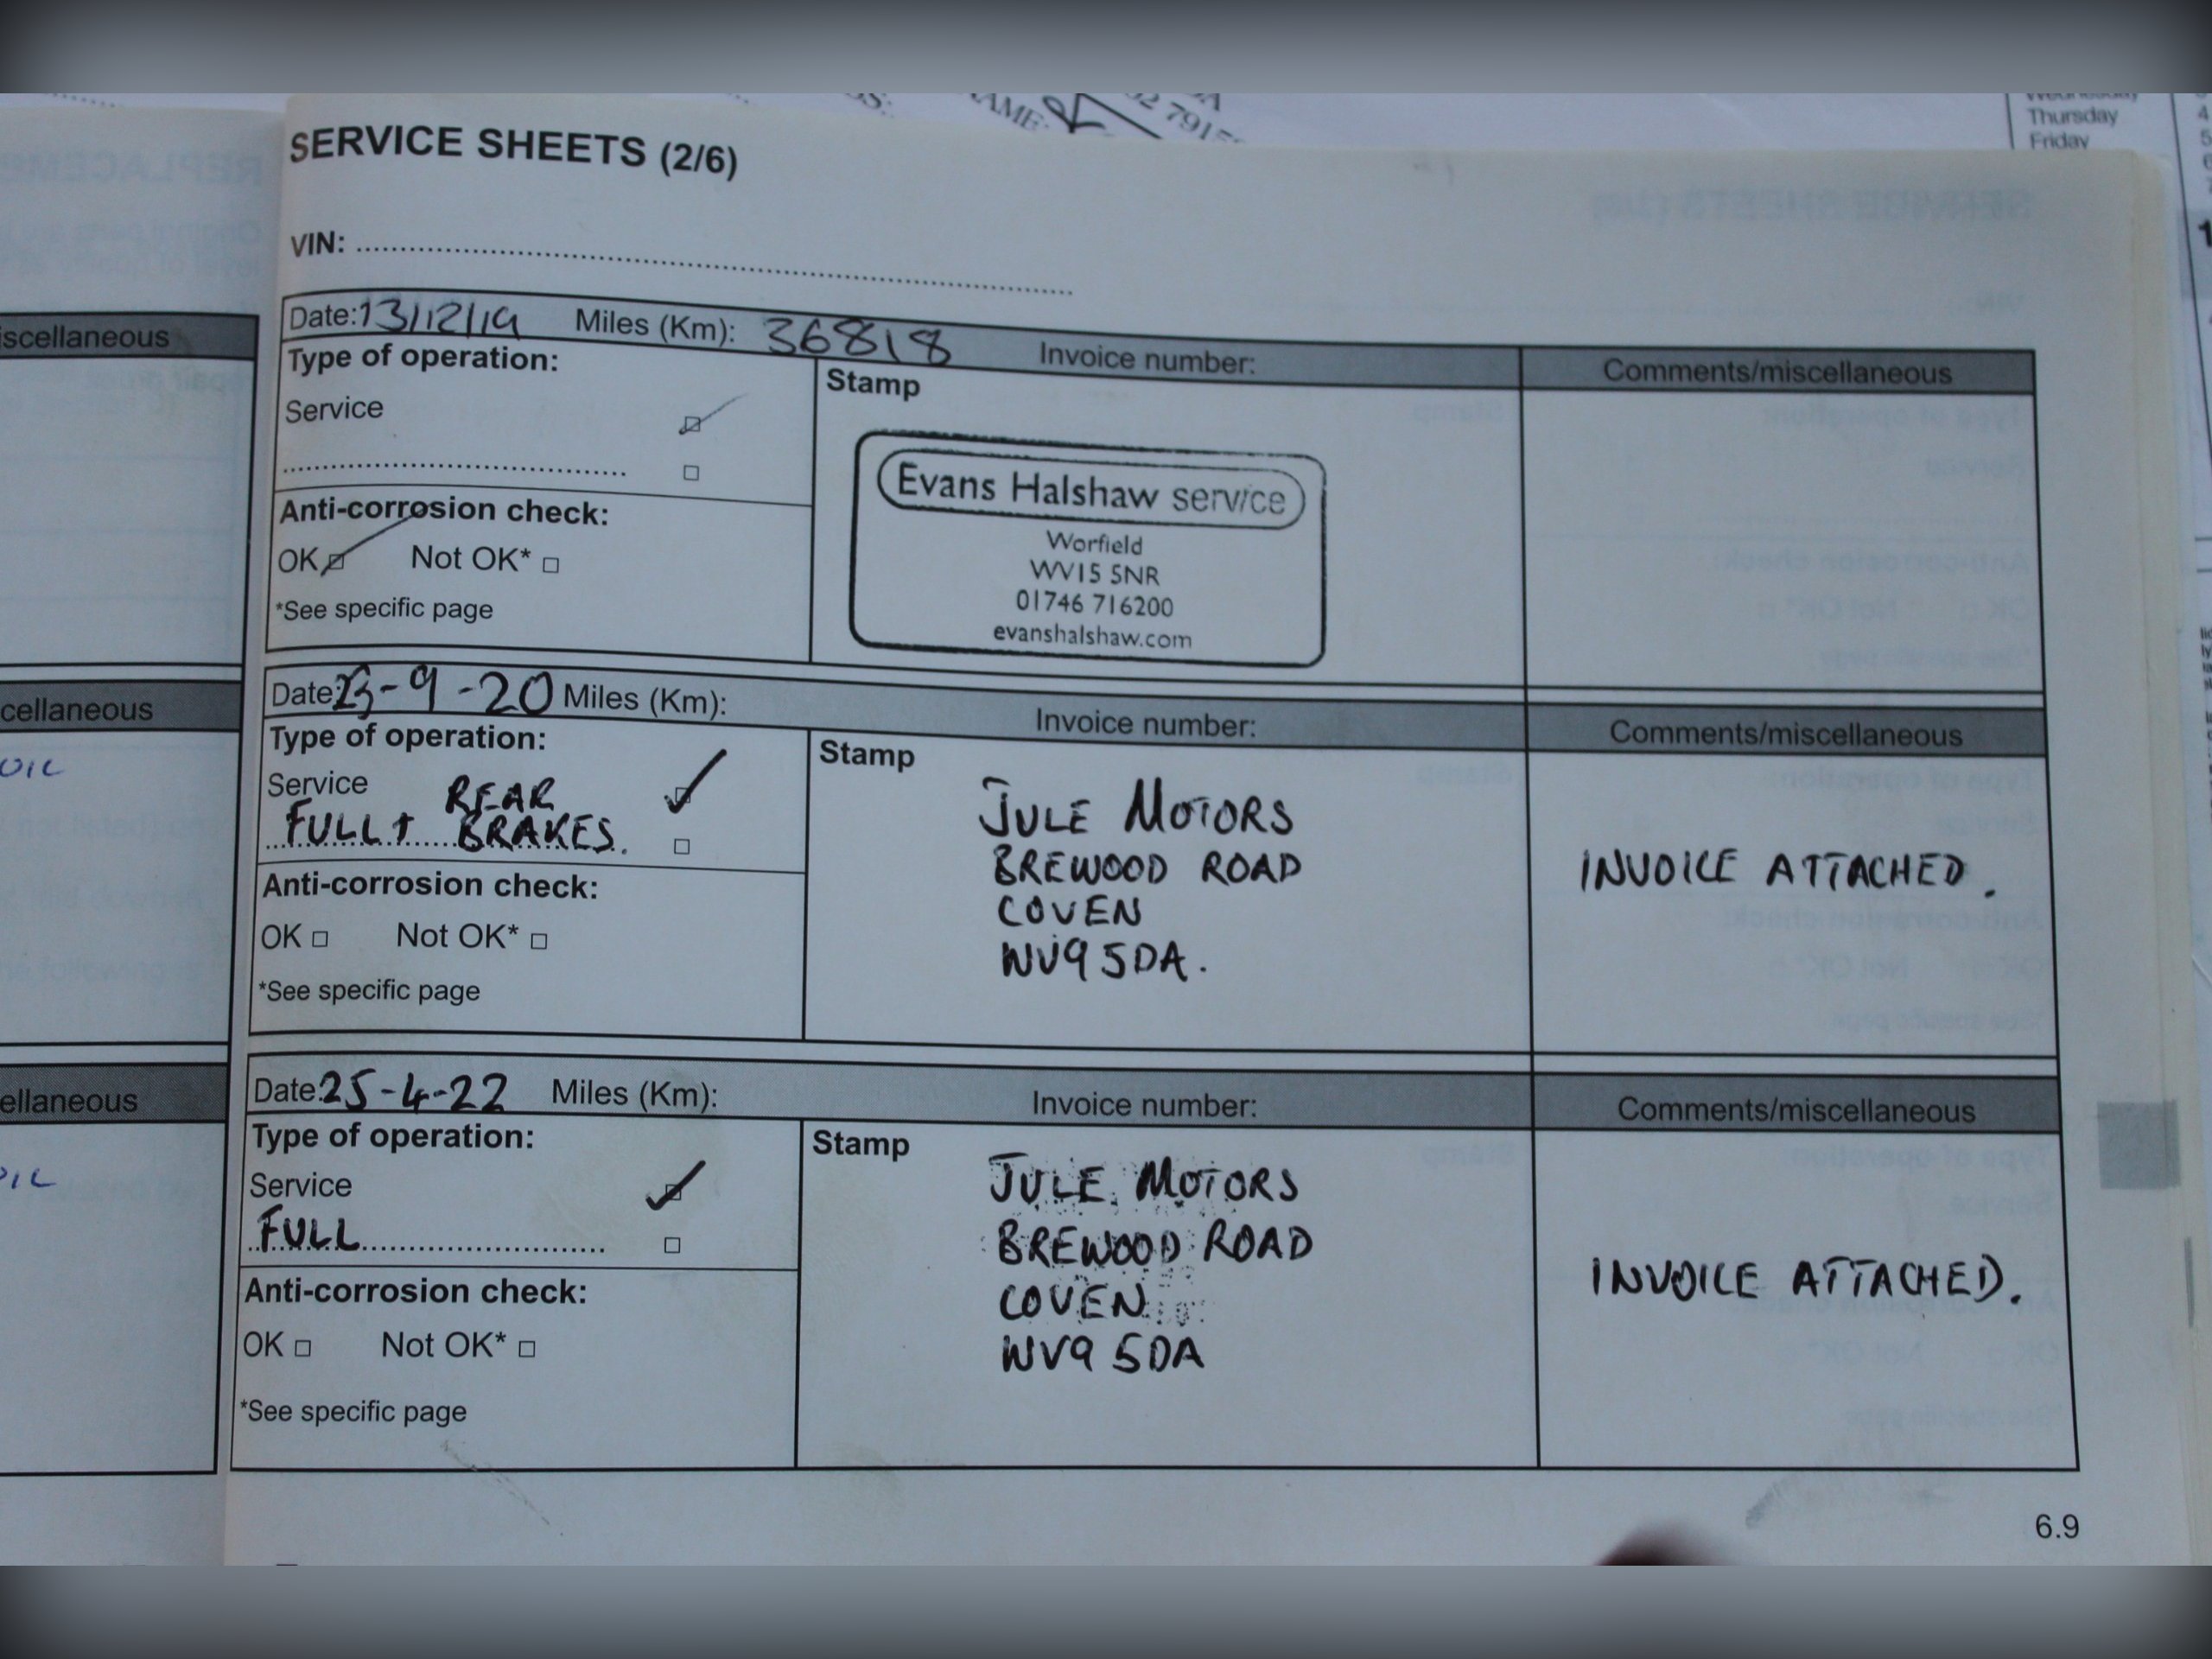 SERVICE SHEETS (2/6)
VIN:
Date: 13/12/19 Miles (Km): 36818 Invoice number: Comments/miscellaneous
Type of operation:
Stamp
Service
Evans Halshaw service
Worfield
WV15 5NR
01746 716200
evanshalshaw.com
Anti-corrosion check:
OK Not OK*
*See specific page
Date: 23-9-20 Miles (Km): Invoice number: Comments/miscellaneous
Type of operation:
Stamp
Service
FULL + REAR BRAKES.
JULE MOTORS
BREWOOD ROAD
COVEN
WV9 5DA.
INVOICE ATTACHED.
Anti-corrosion check:
OK Not OK*
*See specific page
Date: 25-4-22 Miles (Km): Invoice number: Comments/miscellaneous
Type of operation:
Stamp
Service
FULL
JULE MOTORS
BREWOOD ROAD
COVEN
WV9 5DA
INVOICE ATTACHED.
Anti-corrosion check:
OK Not OK*
*See specific page
6.9
Thursday
Friday
OIL